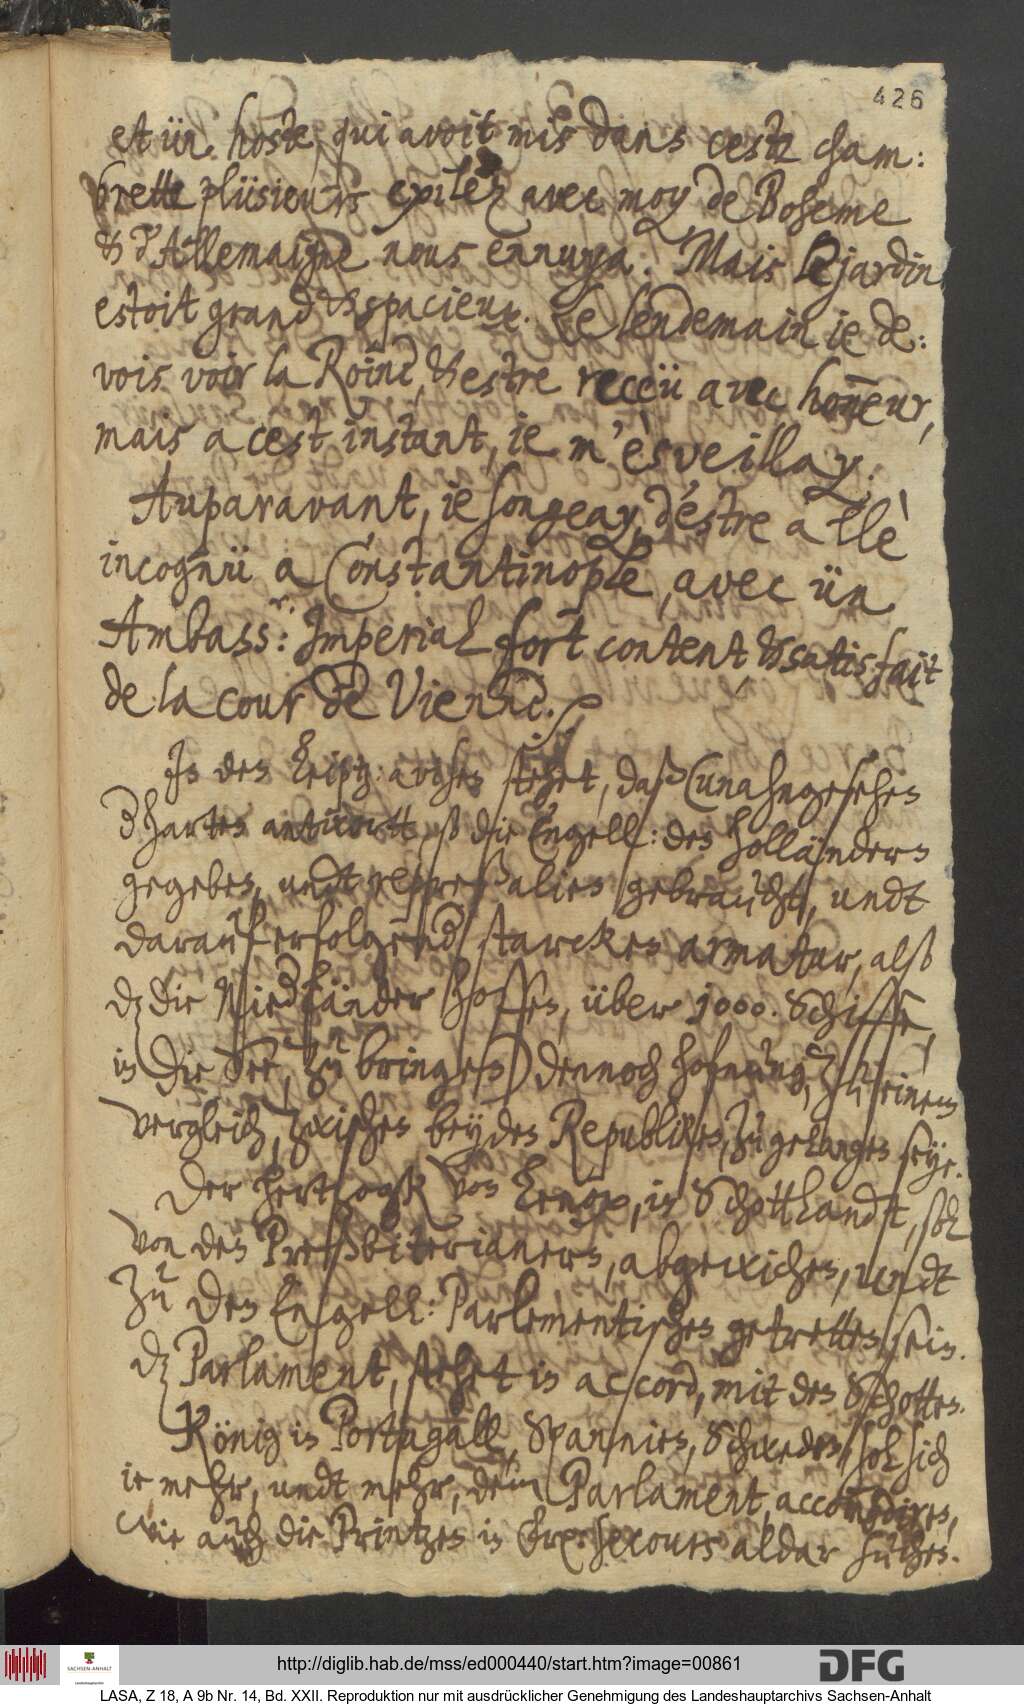 426
et ün hoste, qui avoit mis dans ceste cham:
brette plüsieurs exilèz avec moy de Boheme
& d'Allemaigne nous ennuya. Mais le jardin
estoit grand & spacieux. Le lendemain ie de:
vois voir la Roine, & estre receü avec hon̄eur,
mais a cest instant, ie m'ésveillay.
Auparavant, ie songeay, d'éstre allè
incognü a Constantinople, avec ün
Ambass:r. Imperial fort content & satisfait
de la cour de Vienne.
In den Leiptz: avisen stehet, daß (unahngesehen
d harten antwortt, so die Engell: den Holländern
gegeben, undt repressalien gebraücht, undt
darauf erfolgend starcken armatur, alß
dz die Niedländer hoffen, über 1000. Schiffe,
in die See, zu bringen) dennoch hofnung, zu einem
vergleich, zwischen beyden Republiken, zu gelangen seye.
Der Hertzogk von Lenox, in Schottlandt, sol
von den Preßbiterianern, abgewichen, undt
zu den Engell: Parlementischen getretten sein.
dz Parlament, stehet in accord, mit den Schotten.
König in Portugall, Spannien, Schweden, sol sich
ie mehr, undt mehr, dem Parlament, accom̄odiren,
wie auch die Printzen in secours aldar suchen.
http://diglib.hab.de/mss/ed000440/start.htm?image=00861
SACHSEN-ANHALT
DFG
LASA, Z 18, A 9b Nr. 14, Bd. XXII. Reproduktion nur mit ausdrücklicher Genehmigung des Landeshauptarchivs Sachsen-Anhalt